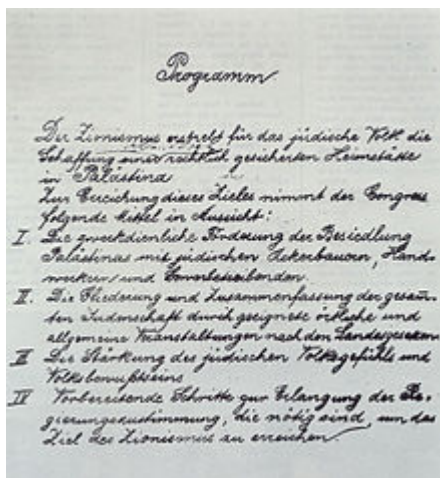 Programm
Der Zionismus erstrebt für das jüdische Volk die
Schaffung einer rechtlich gesicherten Heimstätte
in Palästina
Zur Erreichung dieses Zieles nimmt der Congress
folgende Mittel in Aussicht:
I. Die zweckdienliche Förderung der Besiedlung
Palästinas mit jüdischen Ackerbauern, Hand-
werkern und Gewerbetreibenden.
II. Die Gliederung und Zusammenfassung der gesam̄-
ten Judenschaft durch geeignete örtliche und
allgemeine Veranstaltungen nach den Landesgesetzen
III Die Stärkung des jüdischen Volksgefühls und
Volksbewußtseins
IV Vorbereitende Schritte zur Erlangung der Re-
gierungszustimmung, die nötig sind, um das
Ziel des Zionismus zu erreichen